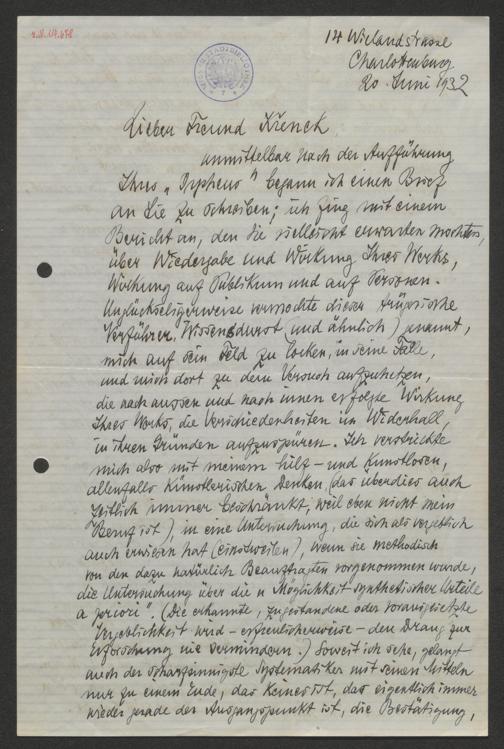 14 Wielandstrasse
Charlottenburg
20. Juni 1932
Lieber Freund Křenek,
unmittelbar nach der Aufführung
Ihres „Orpheus" begann ich einen Brief
an Sie zu schreiben; ich fing mit einem
Bericht an, den Sie vielleicht erwarten mochten,
über Wiedergabe und Wirkung Ihres Werks,
Wirkung auf Publikum und auf Personen.
Unglückseligerweise vermochte dieser
Verführer, Wissensdurst (und ähnlich) genannt,
mich auf sein Feld zu locken, in seine Falle,
und mich dort zu dem Versuch aufzuhetzen,
die nach aussen und nach innen erfolgte Wirkung
Ihres Werks, die Verschiedenheiten im Widerhall,
in ihren Gründen aufzuspüren. Ich verstrickte
mich also mit meinem hilf- und kunstlosen,
allenfalls künstlerischen Denken, (das überdies auch
zeitlich immer beschränkt, weil eben nicht mein
Beruf ist), in eine Untersuchung, die sich als vergeblich
auch erwiesen hat (einstweilen), wenn sie methodisch
von den dazu natürlich Beauftragten vorgenommen wurde,
die Untersuchung über die „Möglichkeit synthetischer Urteile
a priori". (Die erkannte, zugestandene oder vorausgesetzte
Vergeblichkeit wird – erfreulicherweise – den Drang zur
Erforschung nie vermindern.) Soweit ich sehe, gelangt
auch der scharfsinnigste Systematiker mit seinen Mitteln
nur zu einem Ende, das keines ist, das eigentlich immer
wieder gerade der Ausgangspunkt ist, die Bestätigung,